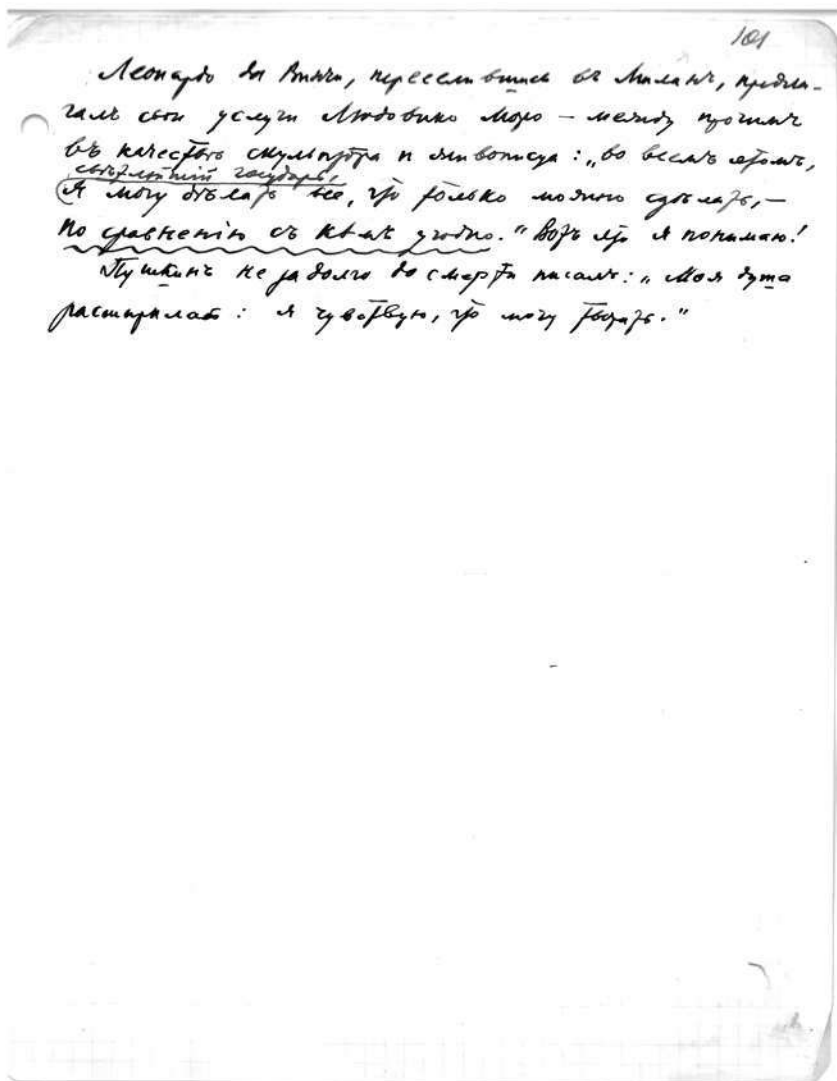 101
Леонардо да Винчи, переселившись въ Миланъ, предла-
галъ свои услуги Людовико Моро — между прочимъ
въ качествѣ скульптора и живописца: „Во всемъ этомъ,
свѣтлѣйшій государь,
я могу дѣлать все, что только можно сдѣлать, —
по сравненію съ кѣмъ угодно.“ Вотъ это я понимаю!
Пушкинъ не задолго до смерти писалъ: „Моя душа
расширилась: я чувствую, что могу творить.“